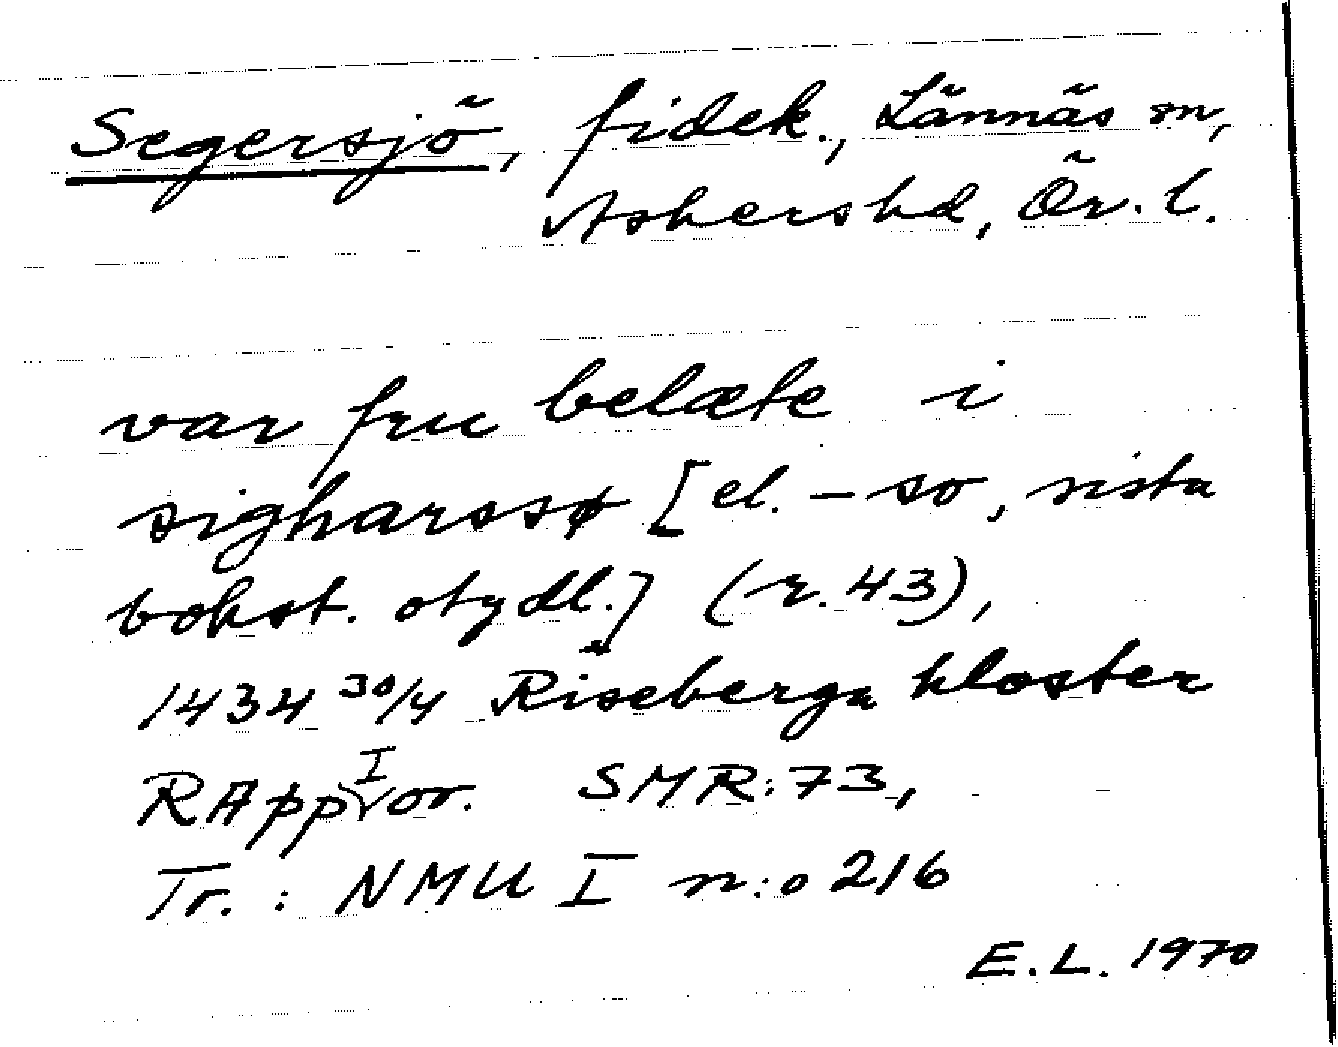 Segersjö, fidek., Lännäs sn,
Askershd, Ör. l.
var fru belæte i
sigharssø [el. -so, sista
bokst. otydl.] (r. 43),
1434 30/4 Riseberga kloster
RApp I or. SMR:73,
Tr.: NMU I n:o 216
E.L. 1970